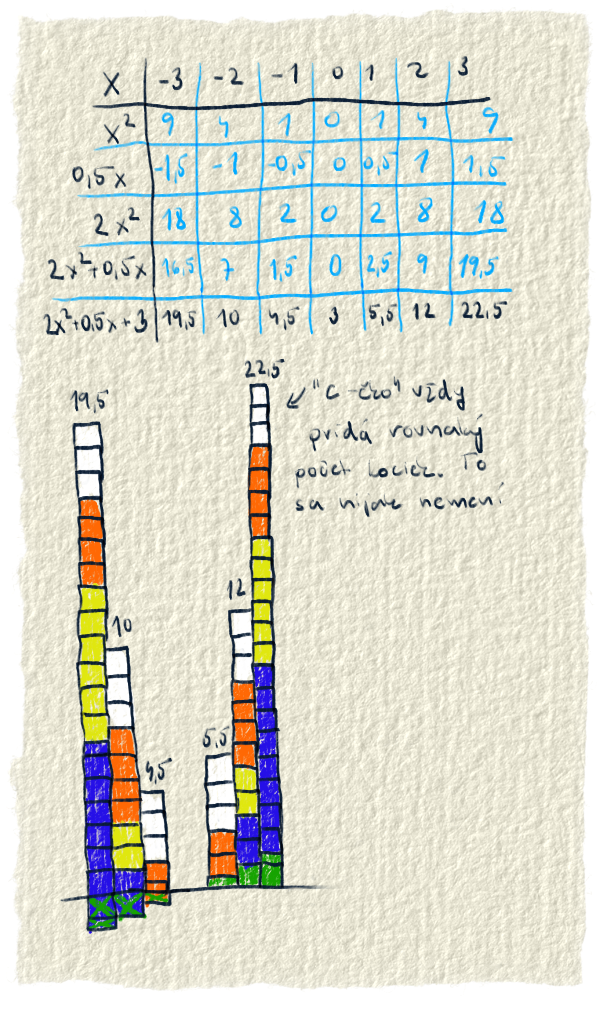 x -3 -2 -1 0 1 2 3
x² 9 4 1 0 1 4 9
0,5x -1,5 -1 -0,5 0 0,5 1 1,5
2x² 18 8 2 0 2 8 18
2x²+0,5x 16,5 7 1,5 0 2,5 9 19,5
2x²+0,5x+3 19,5 10 4,5 3 5,5 12 22,5
22,5
19,5
"C-čko" vždy
pridá rovnaký
počet kociek. To
sa nijak nemení
12
10
5,5
4,5